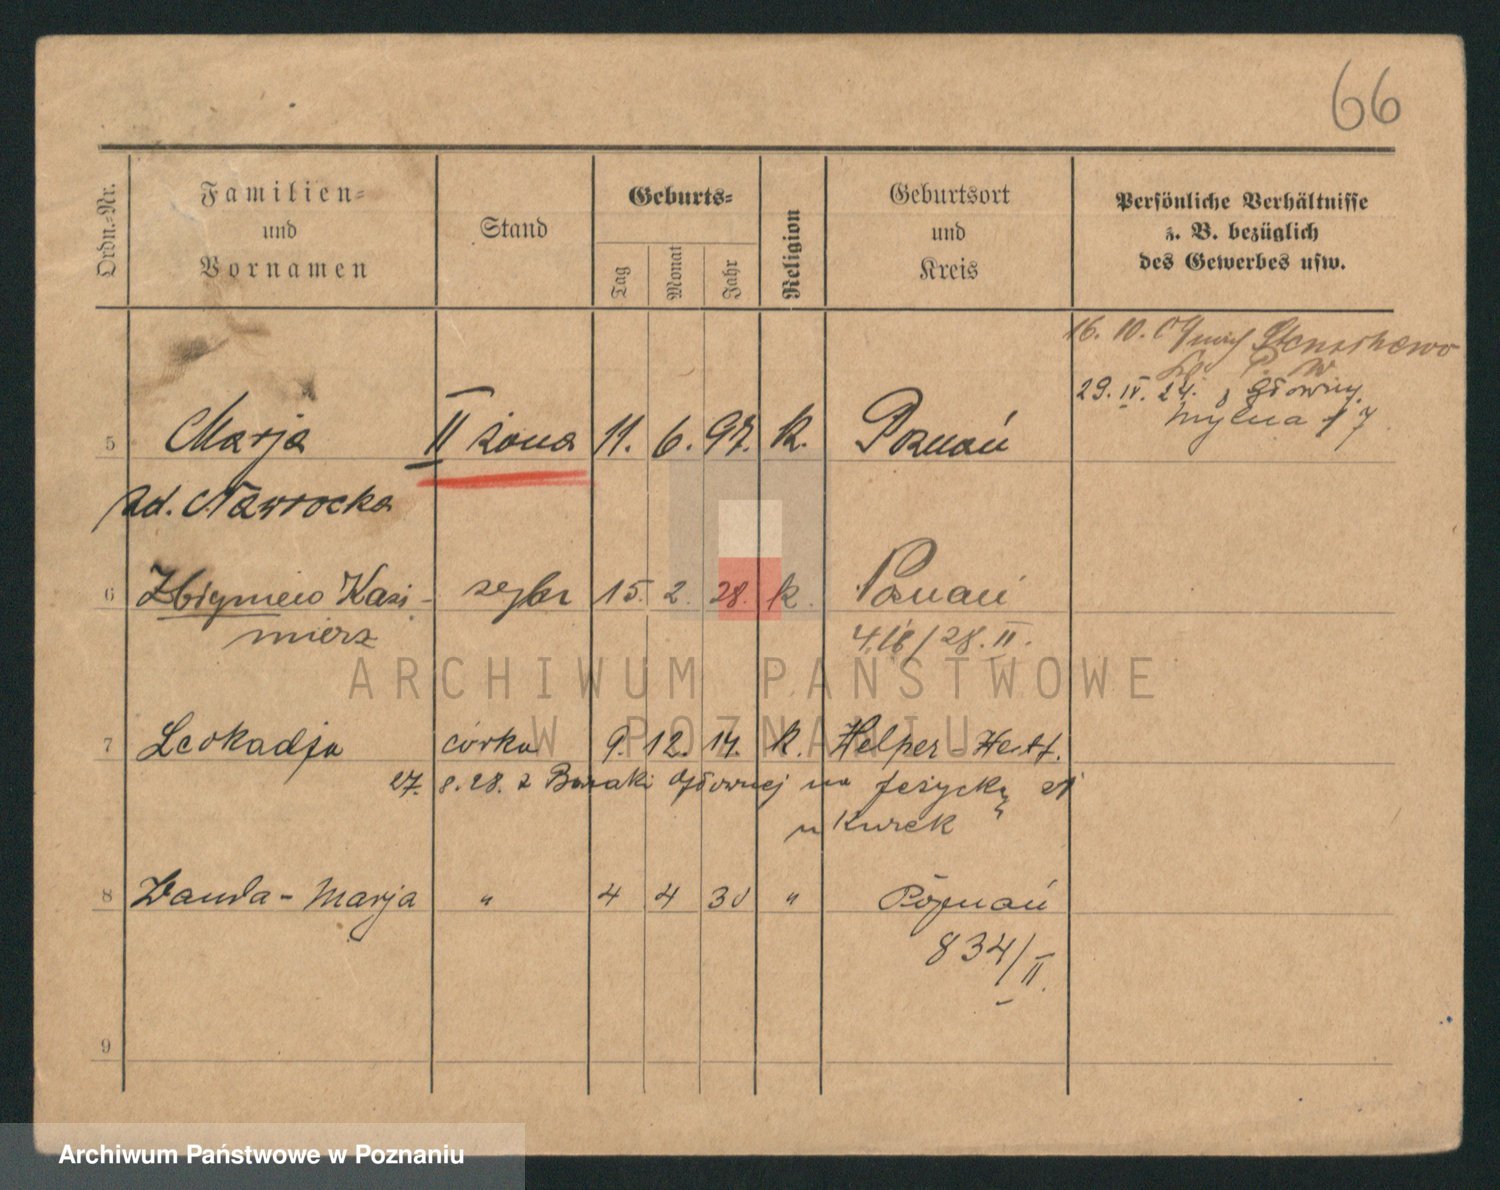 66
Ordn.-Nr.
Familien-
und
Vornamen
Stand
Geburts-
Tag
Monat
Jahr
Religion
Geburtsort
und
Kreis
Persönliche Verhältnisse
z. B. bezüglich
des Gewerbes usw.
16. 10.
29. IV. 24. z Główny
Mylna 17
5 Marja II żona 11. 6. 97. k. Poznań
zd. Nawrocka
6 Zbigniew Kazi- 15. 2. 28. k. Poznań
mierz 416/28. II.
ARCHIWUM PAŃSTWOWE
W POZNANIU
7 Leokadja córka 9. 12. 14. k. Helper-Hertf.
27. 8. 28. z Baraki Głównej na Jeżycką 21
u Kurek
8 Wanda-Marja " 4 4 30 " Poznań
834/II.
9
Archiwum Państwowe w Poznaniu